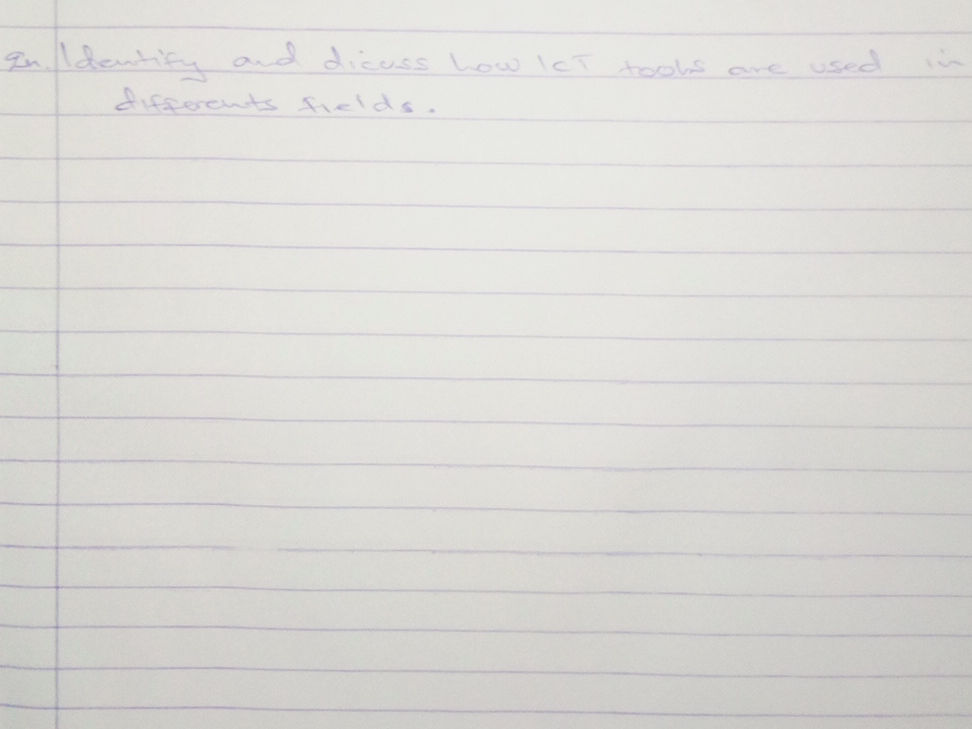 Qn. Identify and dicuss how ICT tools are used in
differents fields.